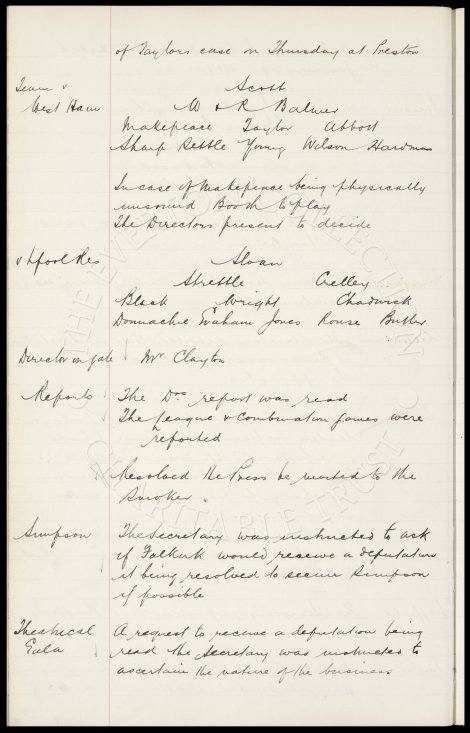 of Taylors case on Thursday at Preston
Team v Scott
West Ham W & R Balmer
Makepeace Taylor Abbott
Sharp Settle Young Wilson Hardman
In case of Makepeace being physically
unsound Booth to play
The Directors present to decide
v Lpool Res Sloan
Strettle Crelley
Black Wright Chadwick
Donnachie Graham Jones Rouse Butler
Director on gate Mr Clayton
Reports The Drs report was read
The League & Combination games were
reported
Resolved the Press be invited to the
Smoker
Simpson The Secretary was instructed to ask
if Falkirk would receive a deputation
it being resolved to secure Simpson
if possible
Theatrical A request to receive a deputation being
Gala read the Secretary was instructed to
ascertain the nature of the business
THE EVERTON COLLECTION
CHARITABLE TRUST